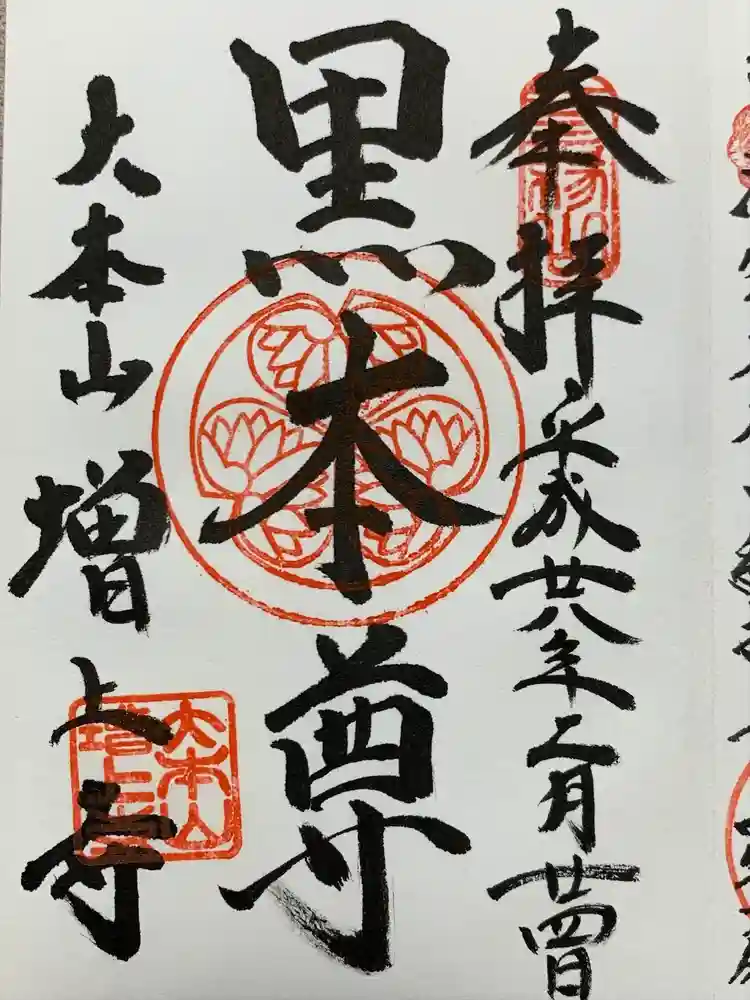 奉拝
平成廿八年二月廿四日
黒本尊
大本山 増上寺
大本山
増上寺